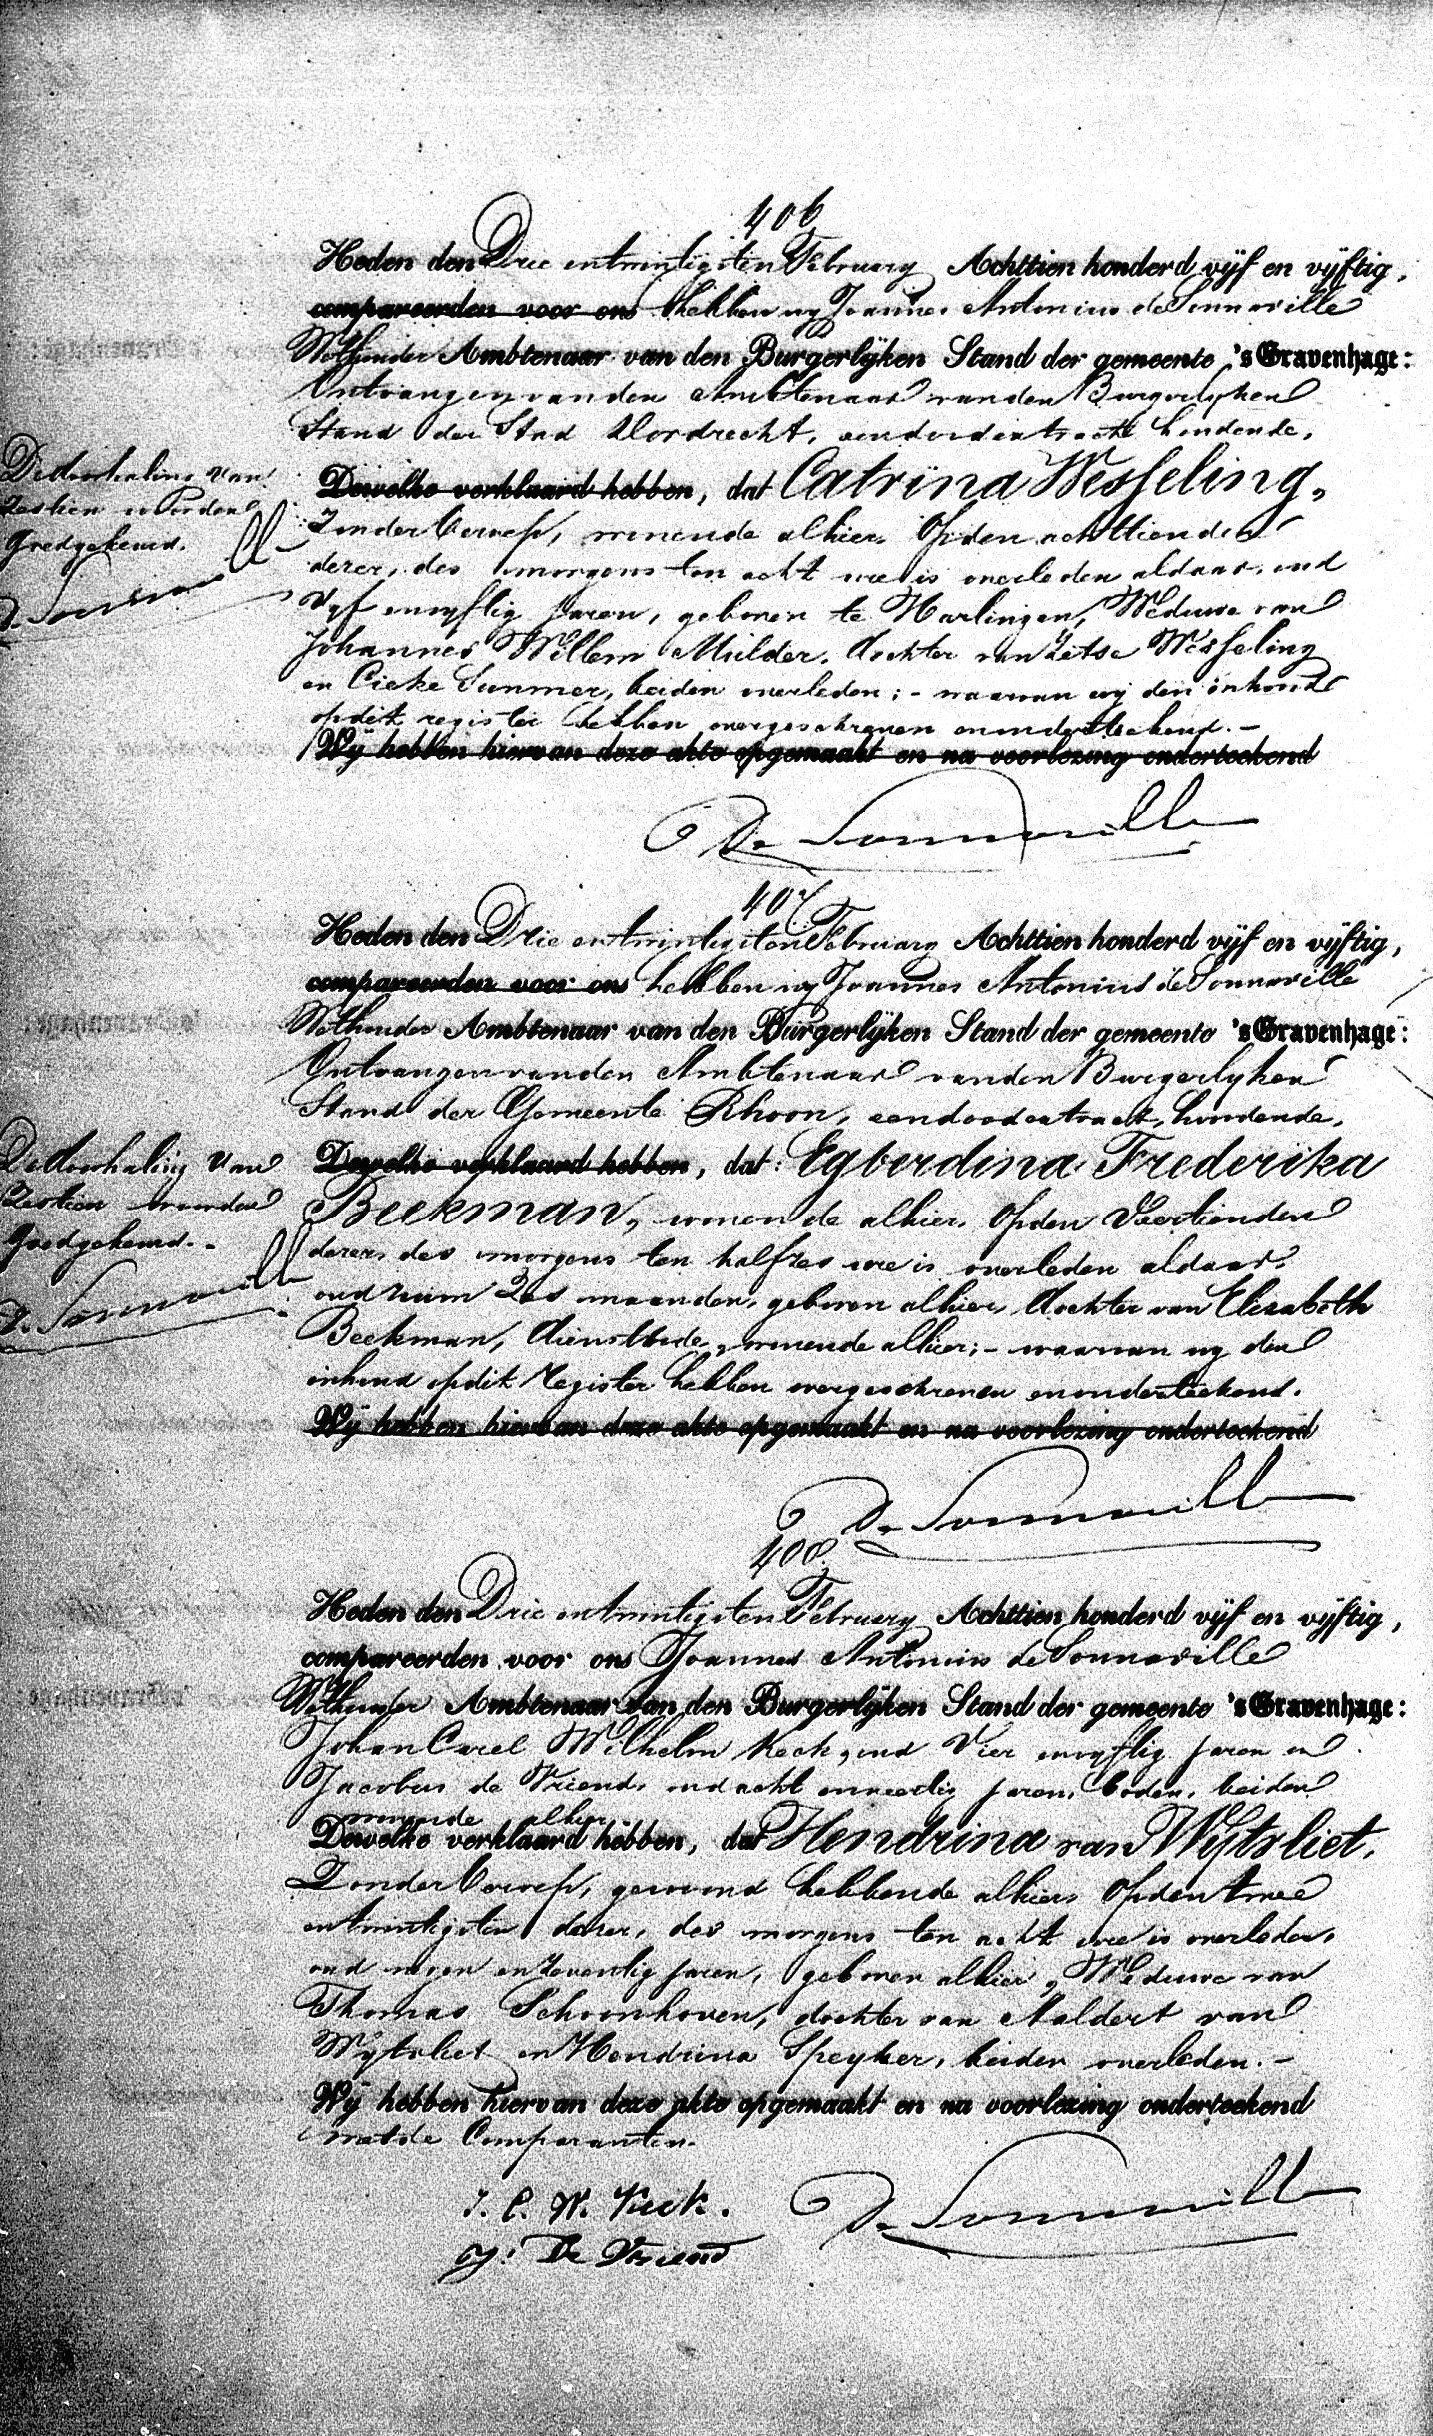 406
Heden den Drie entwintigsten February Achttien honderd vijf en vijftig,
compareerden voor ons hebben wy Joannes Antonius de Sonnaville
Wethouder Ambtenaar van den Burgerlijken Stand der gemeente 's Gravenhage:
Ontvangen van den Ambtenaar van den Burgerlyken
Stand der Stad Dordrecht, een doodextract houdende,
De doorhaling van
zestien woorden
goedgekeurd.
De Sonnaville
Dewelke verklaard hebben, dat Catrina Wesseling,
Zonder beroep, wonende alhier, Op den achttienden
dezer, des morgens ten acht ure is overleden aldaar, oud
Vyf envyftig Jaren, geboren te Harlingen, Weduwe van
Johannes Willem Mulder, dochter van Zetse Wesseling
en Cieke Summer, beiden overleden; - waarvan wy den inhoud
op dit register hebben overgeschreven en onderteekend. -
Wij hebben hiervan deze akte opgemaakt en na voorlezing onderteekend
De Sonnaville
407
Heden den Drie entwintigsten February Achttien honderd vijf en vijftig,
compareerden voor ons hebben wy Joannes Antonius de Sonnaville
Wethouder Ambtenaar van den Burgerlijken Stand der gemeente 's Gravenhage:
Ontvangen van den Ambtenaar van den Burgerlyken
Stand der Gemeente Rhoon, een doodextract, houdende,
De doorhaling van
Zestien woorden
goedgekeurd. -
De Sonnaville
Dewelke verklaard hebben, dat: Egberdina Frederika
Beekman, wonende alhier, Op den Veertienden
dezer, des morgens ten half zes ure is overleden aldaar,
oud ruim Zes maanden, geboren alhier, dochter van Elisabeth
Beekman, dienstbode, wonende alhier; - waarvan wy den
inhoud op dit Register hebben overgeschreven en onderteekend.
Wij hebben hiervan deze akte opgemaakt en na voorlezing onderteekend
De Sonnaville
408
Heden den Drie entwintigsten February Achttien honderd vijf en vijftig,
compareerden voor ons Joannes Antonius de Sonnaville
Wethouder Ambtenaar van den Burgerlijken Stand der gemeente 's Gravenhage:
Johan Carel Wilhelm Keck, oud Vier envyftig jaren en
Jacobus de Vriend, oud acht enveertig jaren, boden, beiden
wonende alhier
Dewelke verklaard hebben, dat Hendrina van Wytvliet,
Zonder beroep, gewoond hebbende alhier, Op den twee
entwintigsten dezer, des morgens ten acht ure is overleden,
oud negen en zeventig jaren, geboren alhier, Weduwe van
Thomas Schoonhoven, dochter van Aaldert van
Wytvliet en Hendrina Speyker, beiden overleden. -
Wij hebben hiervan deze akte opgemaakt en na voorlezing onderteekend
met de Comparanten.
J. C. W. Keck.
De Sonnaville
J: De Vriend